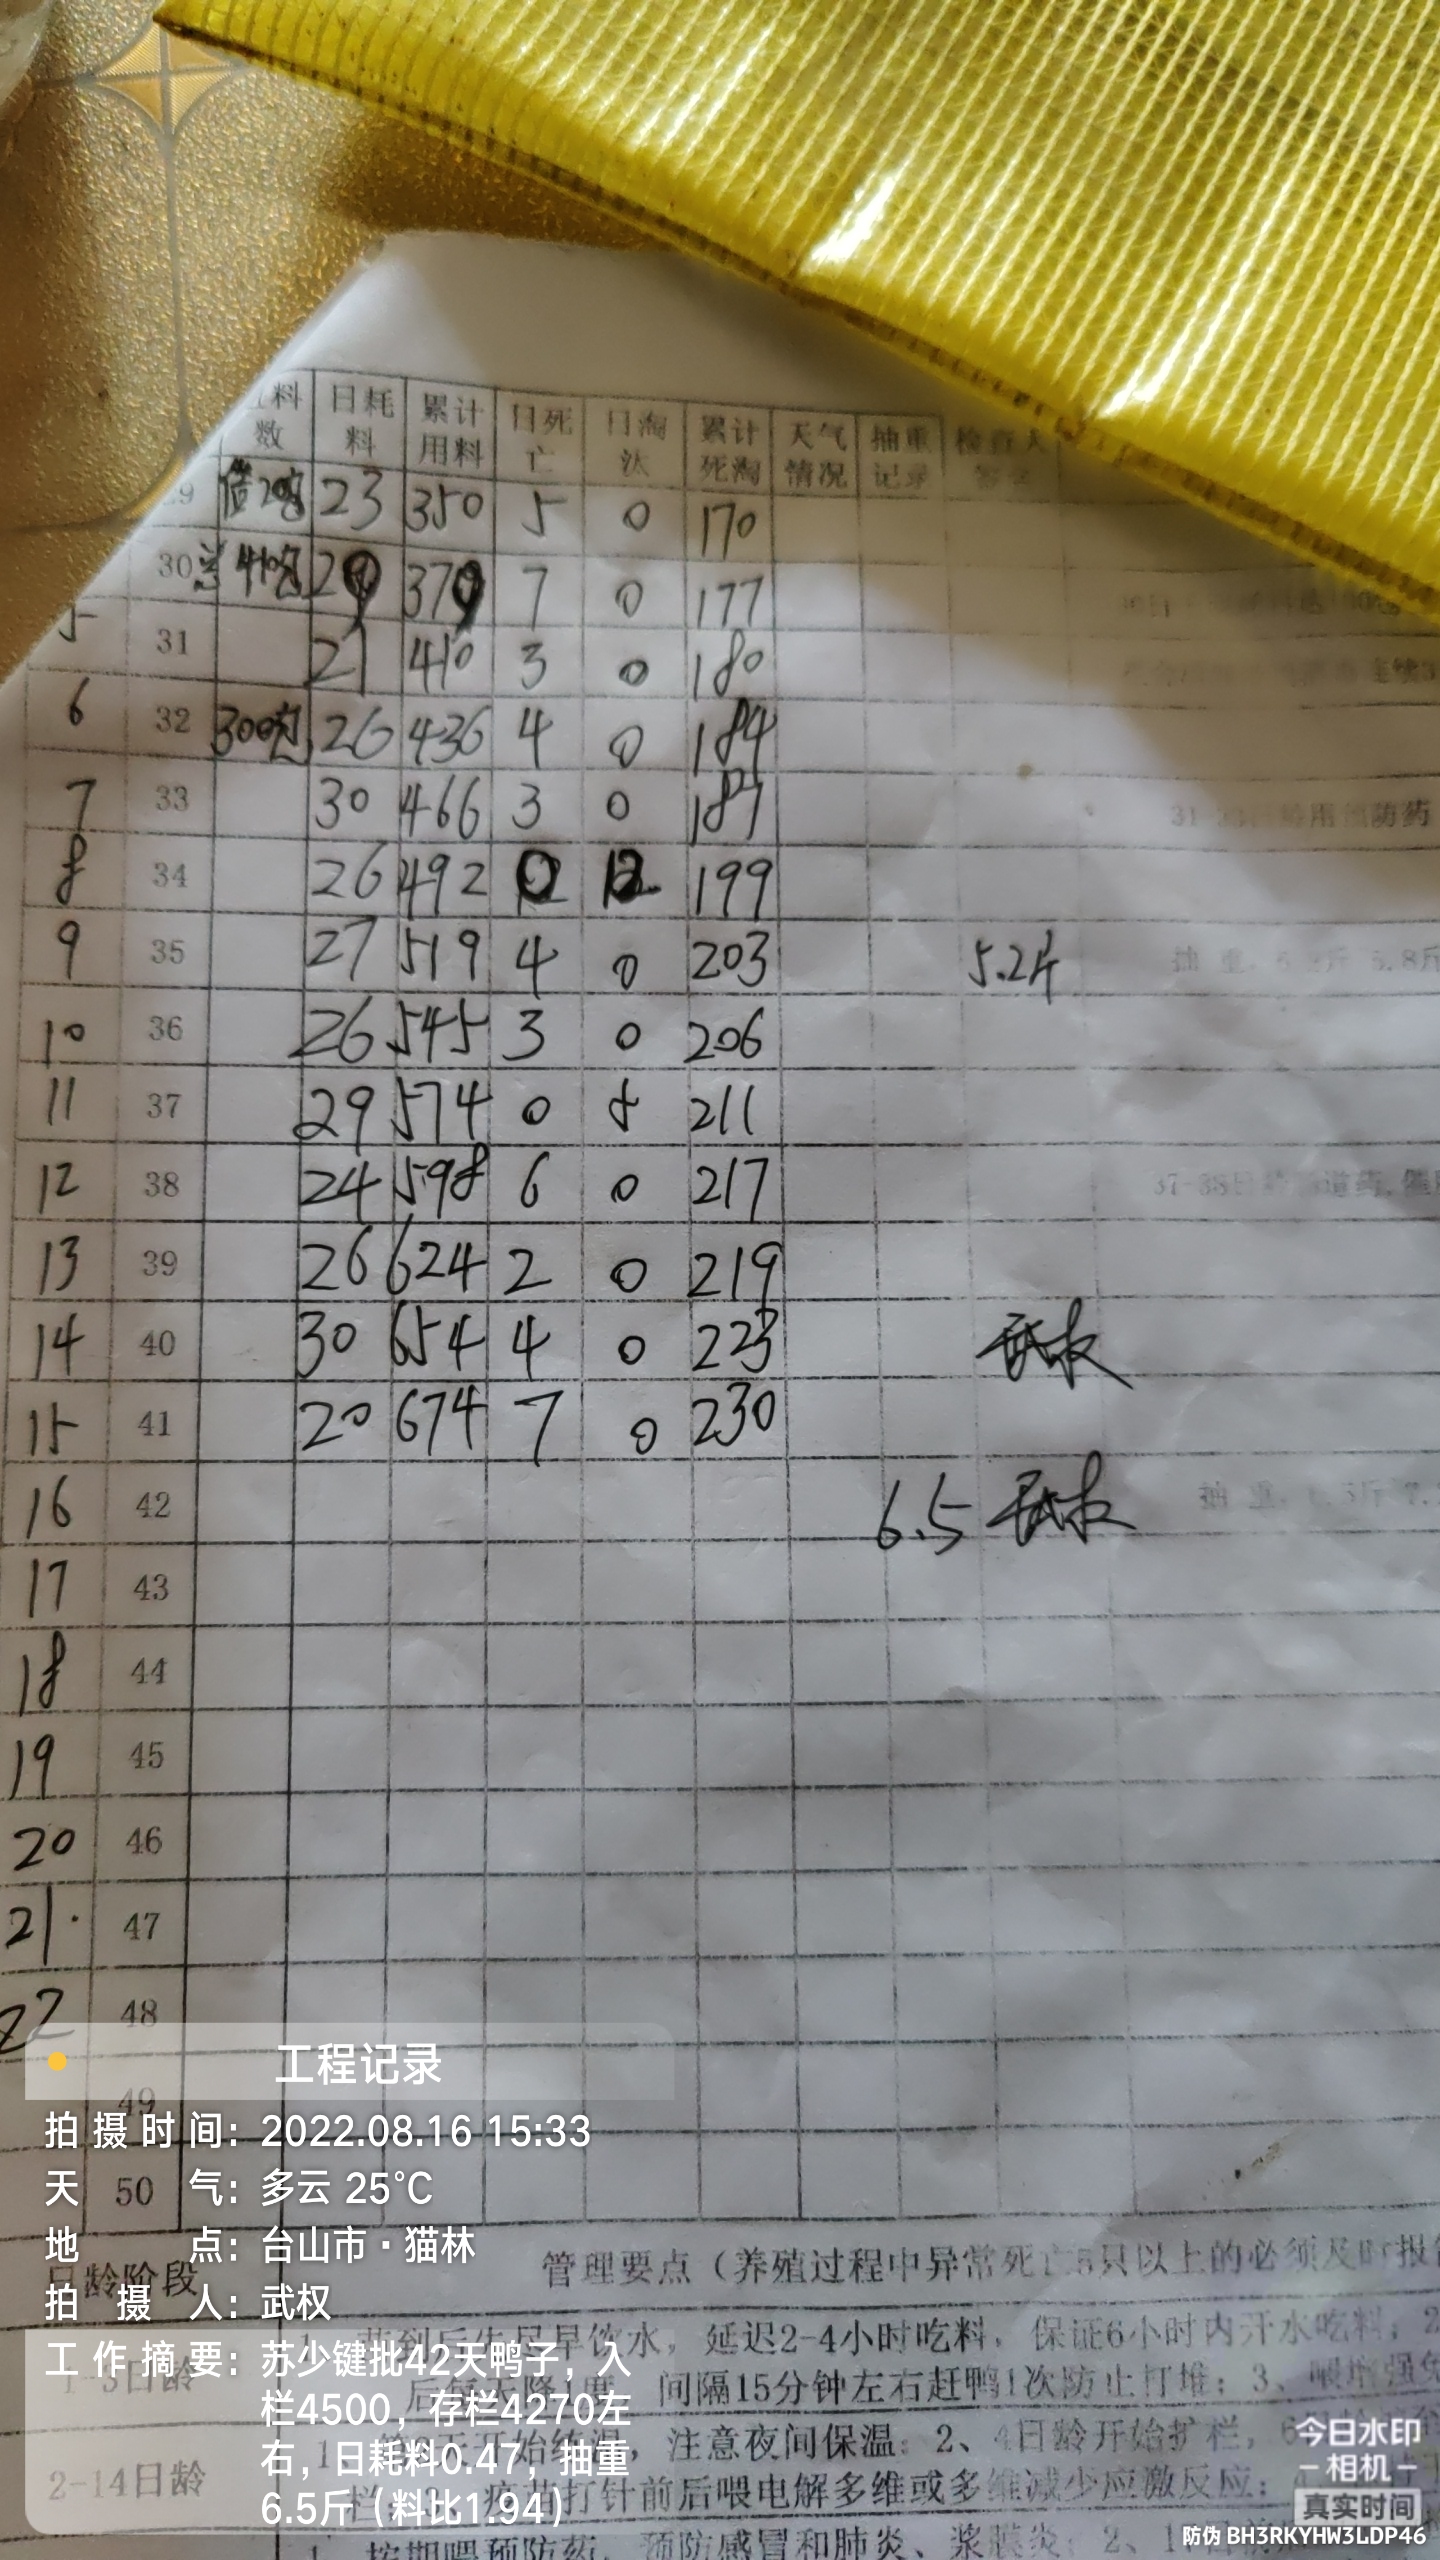 料数 日耗料 累计用料 日死亡 日淘汰 累计死淘 天气情况 抽重记录 检查人
借20包 23 350 5 0 170
30 总410包 29 379 7 0 177
5 31 21 410 3 0 180
6 32 300包 26 436 4 0 184
7 33 30 466 3 0 187 用 防药
8 34 26 492 0 12 199
9 35 27 519 4 0 203 5.2斤 抽重
10 36 26 545 3 0 206
11 37 29 574 0 5 211
12 38 24 598 6 0 217 37-38日 道药
13 39 26 624 2 0 219
14 40 30 654 4 0 223 武权
15 41 20 674 7 0 230
16 42 6.5 武权 抽重
17 43
18 44
19 45
20 46
21 47
22 48
49
50
工程记录
拍摄时间：2022.08.16 15:33
天气：多云 25℃
地点：台山市·猫林
拍摄人：武权
工作摘要：苏少键批42天鸭子，入
栏4500，存栏4270左
右，日耗料0.47，抽重
6.5斤（料比1.94）
日龄阶段 管理要点（养殖过程中异常死亡5只以上的必须及时报
1-3日龄 早饮水，延迟2-4小时吃料，保证6小时内开水吃料；2
间隔15分钟左右赶鸭1次防止打堆；3、喂增强免
2-14日龄 开始 注意夜间保温 2、4日龄开始扩栏，6
打针前后喂电解多维或多维减少应激反应；
1、按期喂预防药，预防感冒和肺炎、浆膜炎；2、1
今日水印
相机
真实时间
防伪 BH3RKYHW3LDP46